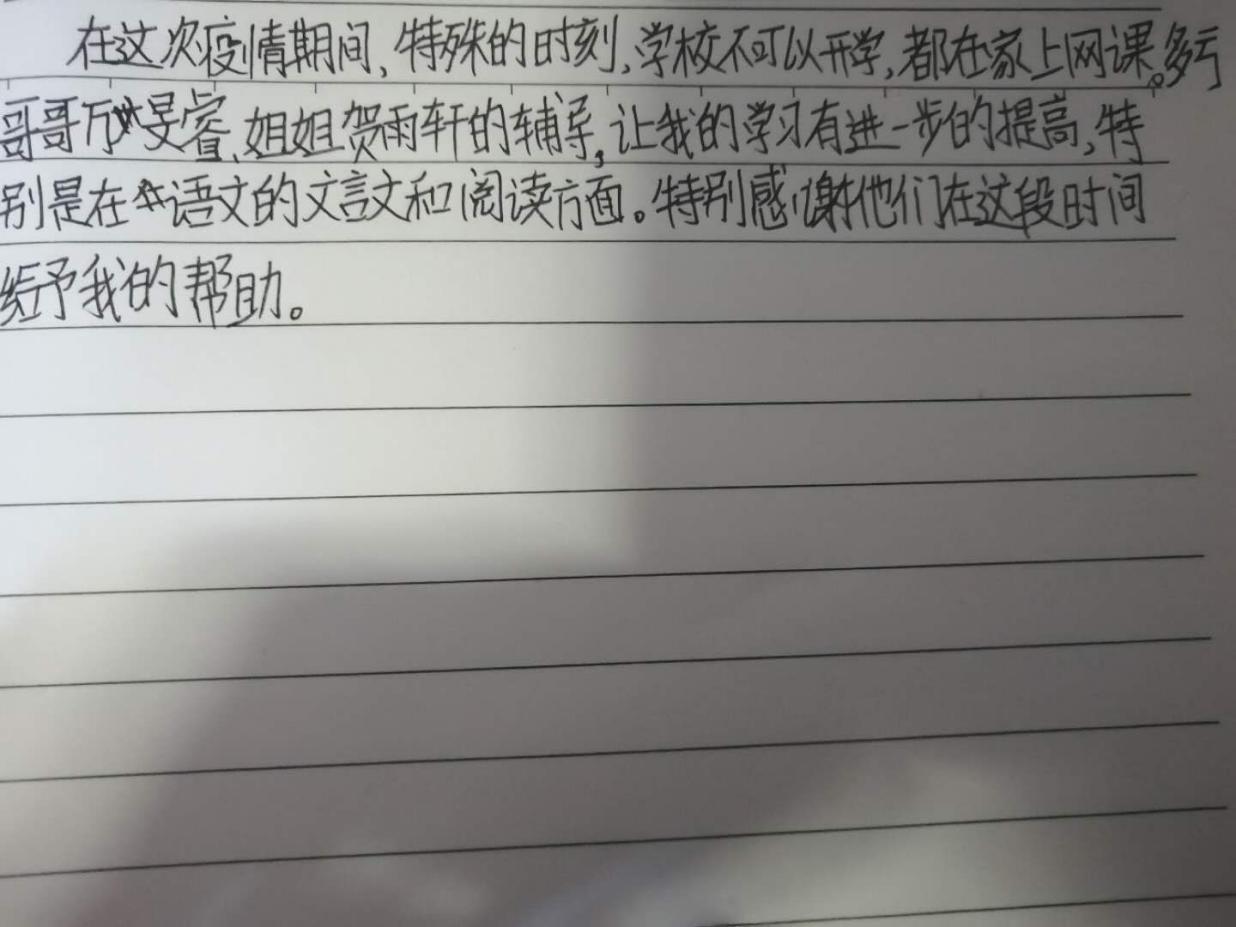 在这次疫情期间,特殊的时刻,学校不可以开学,都在家上网课。多亏
哥哥万旻睿、姐姐贺雨轩的辅导,让我的学习有进一步的提高,特
别是在语文的文言文和阅读方面。特别感谢他们在这段时间
给予我的帮助。